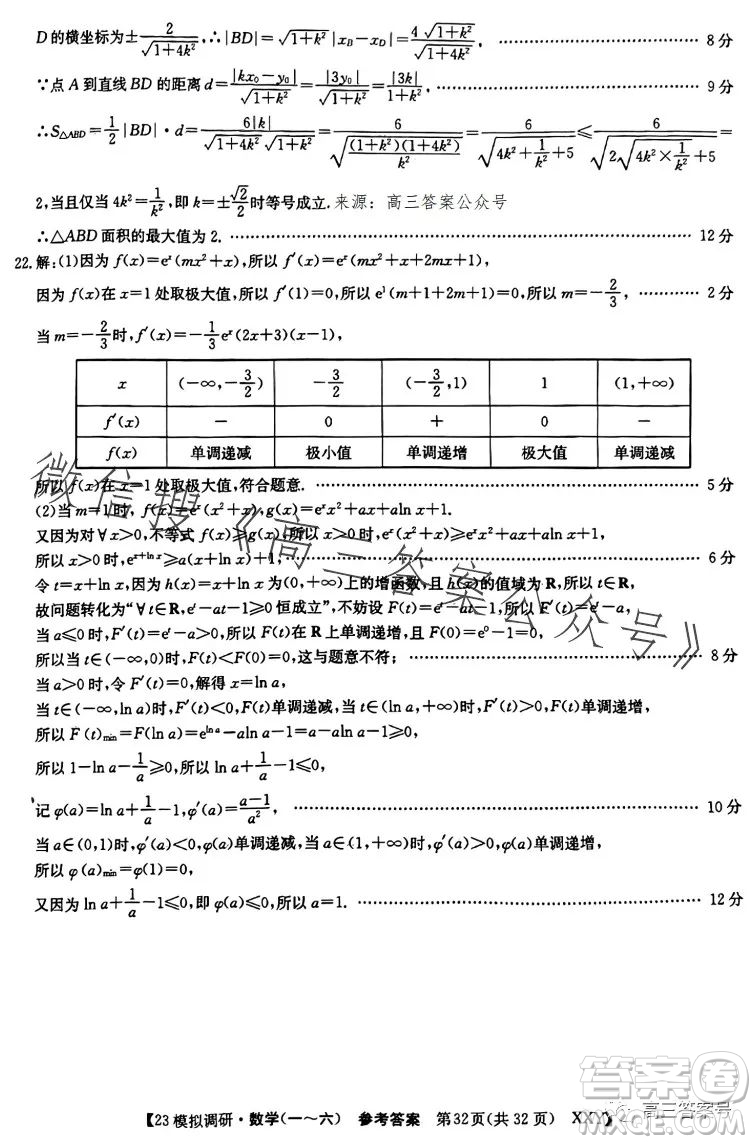 D的横坐标为±2/√(1+4k²),∴|BD|=√(1+k²)|x_B−x_D|=4√(1+k²)/√(1+4k²), 8分
∵点A到直线BD的距离d=|kx₀−y₀|/√(1+k²)=|3y₀|/√(1+k²)=|3k|/√(1+k²) 9分
∴S△ABD=1/2|BD|·d=6|k|/(√(1+4k²)√(1+k²))=6/√((1+k²)(1+4k²)/k²)=6/√(4k²+1/k²+5)≤6/√(2√(4k²×1/k²)+5)=
2,当且仅当4k²=1/k²,即k=±√2/2时等号成立.来源:高三答案公众号
∴△ABD面积的最大值为2. 12分
22.解:(1)因为f(x)=eˣ(mx²+x),所以f′(x)=eˣ(mx²+x+2mx+1),
因为f(x)在x=1处取极大值,所以f′(1)=0,所以e¹(m+1+2m+1)=0,所以m=−2/3, 2分
当m=−2/3时,f′(x)=−1/3eˣ(2x+3)(x−1),
x (−∞,−3/2) −3/2 (−3/2,1) 1 (1,+∞)
f′(x) − 0 + 0 −
f(x) 单调递减 极小值 单调递增 极大值 单调递减
所以f(x)在x=1处取极大值,符合题意. 5分
(2)当m=1时,f(x)=eˣ(x²+x),g(x)=eˣx²+ax+aln x+1.
又因为对∀x>0,不等式f(x)≥g(x),所以x>0时,eˣ(x²+x)≥eˣx²+ax+aln x+1,
所以x>0时,e^(x+ln x)≥a(x+ln x)+1, 6分
令t=x+ln x,因为h(x)=x+ln x为(0,+∞)上的增函数,且h(x)的值域为R,所以t∈R,
故问题转化为“∀t∈R,eᵗ−at−1≥0恒成立”,不妨设F(t)=eᵗ−at−1,所以F′(t)=eᵗ−a,
当a≤0时,F(t)在R上单调递增,且F(0)=e⁰−1=0,
所以当t∈(−∞,0)时,F(t)<F(0)=0,这与题意不符; 8分
当a>0时,令F′(t)=0,解得x=ln a,
当t∈(−∞,lna)时,F′(t)<0,F(t)单调递减,当t∈(ln a,+∞)时,F′(t)>0,F(t)单调递增,
所以F(t)min=F(ln a)=e^(ln a)−aln a−1=a−aln a−1≥0,
所以1−ln a−1/a≥0,即ln a+1/a−1≤0,
记φ(a)=ln a+1/a−1,φ′(a)=(a−1)/a², 10分
当a∈(0,1)时,φ′(a)<0,φ(a)单调递减,当a∈(1,+∞)时,φ′(a)>0,φ(a)单调递增,
所以φ(a)min=φ(1)=0,
又因为ln a+1/a−1≤0,即φ(a)≤0,所以a=1. 12分
微信搜《高三答案公众号》
答案圈
高三答案号
【23模拟调研·数学(一~六) 参考答案 第32页(共32页)